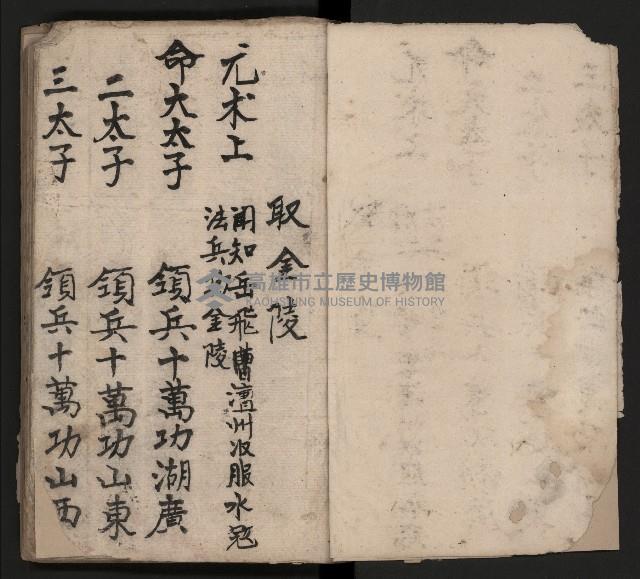 取金陵
元术上
聞知岳飛曹澶州收服水冦
法兵 金陵
命大太子
領兵十萬功湖廣
二太子
領兵十萬功山東
三太子
領兵十萬功山西
高雄市立歷史博物館
KAOHSIUNG MUSEUM OF HISTORY